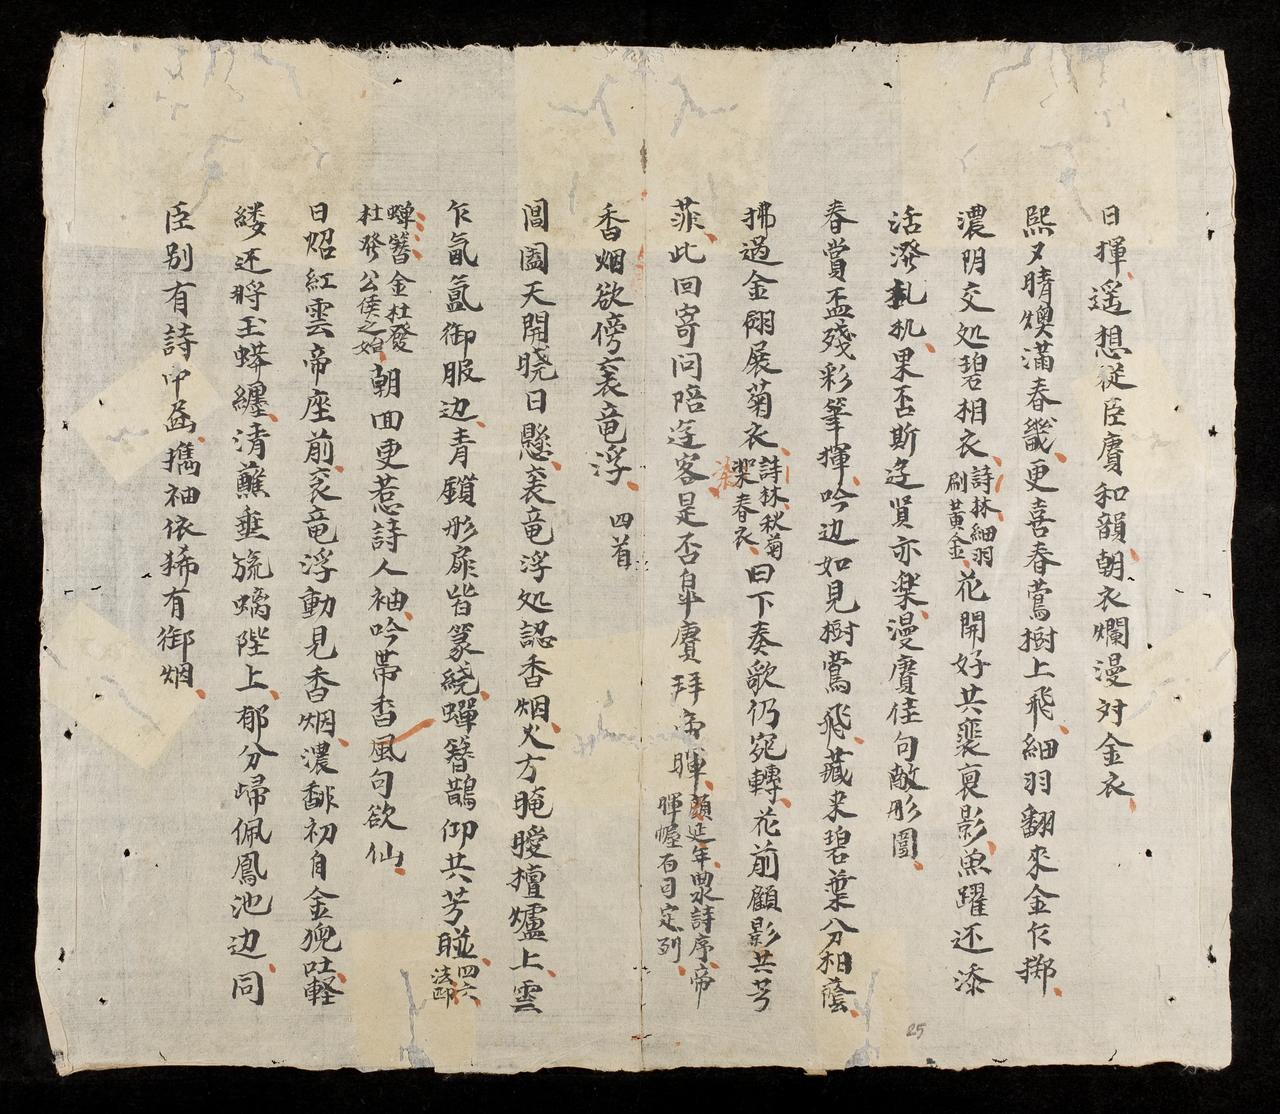 日揮遥想從臣賡和韻朝衣爛漫対金衣
熙夕晴燠滿春畿更喜春鶯樹上飛細羽翻來金乍擲
濃阴交处碧相衣詩林細羽刷黄金花開好共褒裒影魚躍还添
活潑机果否斯筵贤亦楽漫賡佳句敵形圖
春賞盃殘彩筆揮吟边如見樹鶯飛藏来碧葉分相蔭
拂過金翩展菊衣詩林秋菊翠春衣曰下奏歌仍宛轉花前顧影共芳
菲此回寄问陪筵客是否皐賡拜帝暉顔延年曲水詩序帝暉幄有司定列
香烟欲傍袞竜浮 四首
閶阖天開晓日懸袞竜浮处認香烟火方晻曖檀爐上雲
乍氤氲御服边青鎖形扉皆篆繞蟬簪鵲仰共芳聯四六法郎
蟬簪金杜發杜發公侯之始朝回更惹詩人袖吟帯香風句欲仙
日炤紅雲帝座前袞竜浮動見香烟濃馡初自金猊吐軽
缕还将玉蟒纏清蘸垂旒螭陛上郁分歸佩鳳池边同
臣别有詩中函携袖依稀有御烟
25